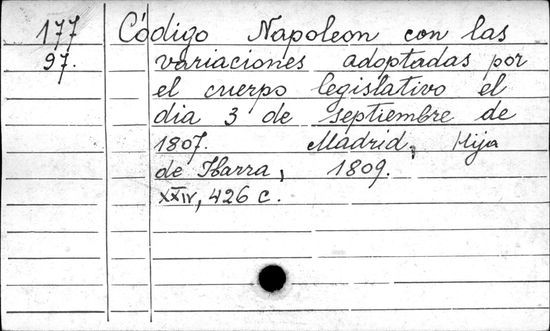 177 Código Napoleon con las
97. variaciones adoptadas por
el cuerpo legislativo el
dia 3 de septiembre de
1807. Madrid, Hija
de Ibarra, 1809.
XXIV, 426 c.